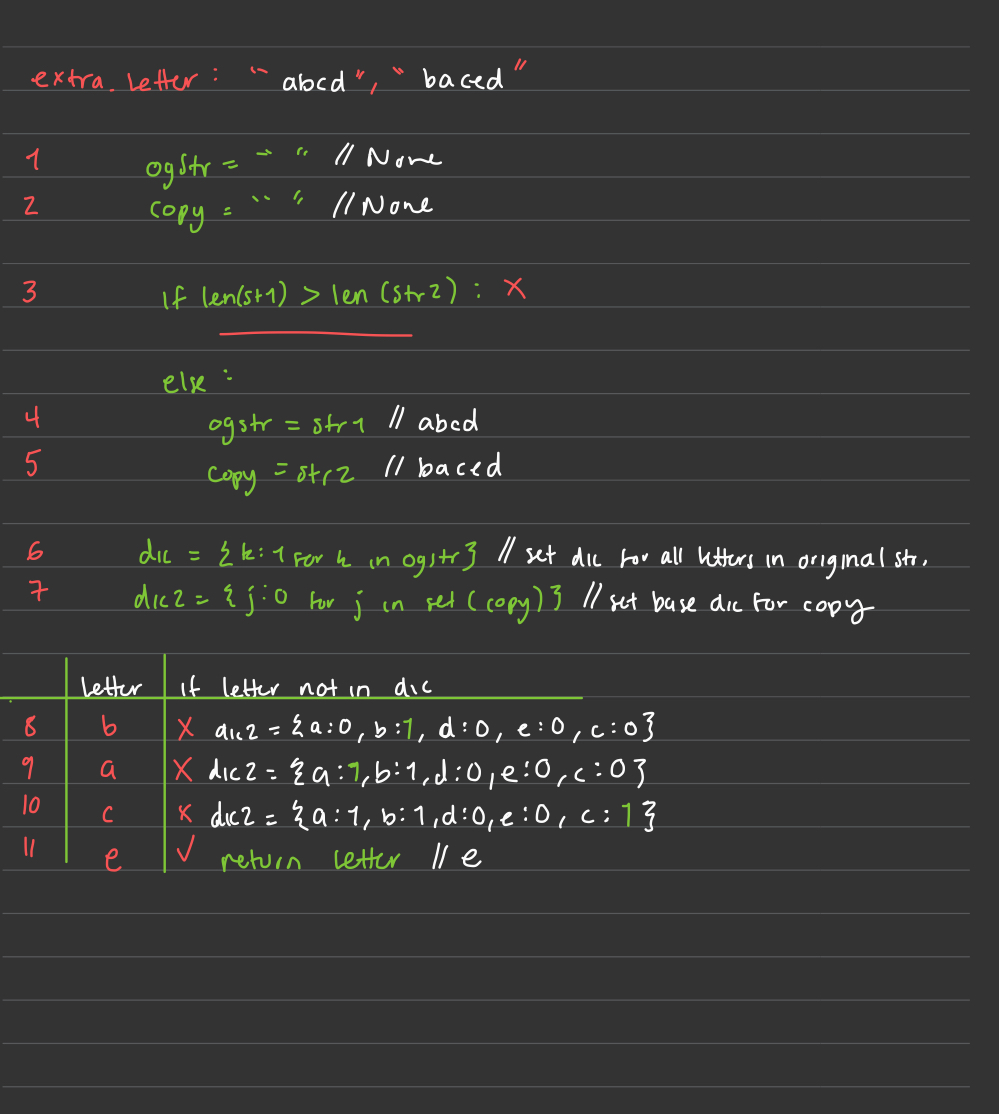 extra. letter : " abcd ", " baced "
1 ogStr = " " // None
2 copy = " " // None
3 if len(st1) > len (str2) : X
else :
4 ogstr = str1 // abcd
5 copy = str2 // baced
6 dic = {k:1 for k in ogstr} // set dic for all letters in original str.
7 dic2 = {j:0 for j in set (copy)} // set base dic for copy
letter if letter not in dic
8 b X dic2 = {a:0, b:1, d:0, e:0, c:0}
9 a X dic2 = {a:1, b:1, d:0, e:0, c:0}
10 c X dic2 = {a:1, b:1, d:0, e:0, c:1}
11 e ✓ return letter // e